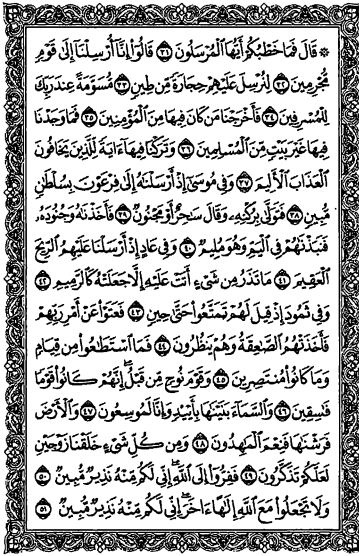 ۞ قَالَ فَمَا خَطْبُكُمْ أَيُّهَا الْمُرْسَلُونَ ٣١ قَالُوا إِنَّا أُرْسِلْنَا إِلَىٰ قَوْمٍ
مُّجْرِمِينَ ٣٢ لِنُرْسِلَ عَلَيْهِمْ حِجَارَةً مِّن طِينٍ ٣٣ مُّسَوَّمَةً عِندَ رَبِّكَ
لِلْمُسْرِفِينَ ٣٤ فَأَخْرَجْنَا مَن كَانَ فِيهَا مِنَ الْمُؤْمِنِينَ ٣٥ فَمَا وَجَدْنَا
فِيهَا غَيْرَ بَيْتٍ مِّنَ الْمُسْلِمِينَ ٣٦ وَتَرَكْنَا فِيهَا آيَةً لِّلَّذِينَ يَخَافُونَ
الْعَذَابَ الْأَلِيمَ ٣٧ وَفِي مُوسَىٰ إِذْ أَرْسَلْنَاهُ إِلَىٰ فِرْعَوْنَ بِسُلْطَانٍ
مُّبِينٍ ٣٨ فَتَوَلَّىٰ بِرُكْنِهِ وَقَالَ سَاحِرٌ أَوْ مَجْنُونٌ ٣٩ فَأَخَذْنَاهُ وَجُنُودَهُ
فَنَبَذْنَاهُمْ فِي الْيَمِّ وَهُوَ مُلِيمٌ ٤٠ وَفِي عَادٍ إِذْ أَرْسَلْنَا عَلَيْهِمُ الرِّيحَ
الْعَقِيمَ ٤١ مَا تَذَرُ مِن شَيْءٍ أَتَتْ عَلَيْهِ إِلَّا جَعَلَتْهُ كَالرَّمِيمِ ٤٢
وَفِي ثَمُودَ إِذْ قِيلَ لَهُمْ تَمَتَّعُوا حَتَّىٰ حِينٍ ٤٣ فَعَتَوْا عَنْ أَمْرِ رَبِّهِمْ
فَأَخَذَتْهُمُ الصَّاعِقَةُ وَهُمْ يَنظُرُونَ ٤٤ فَمَا اسْتَطَاعُوا مِن قِيَامٍ
وَمَا كَانُوا مُنتَصِرِينَ ٤٥ وَقَوْمَ نُوحٍ مِّن قَبْلُ ۖ إِنَّهُمْ كَانُوا قَوْمًا
فَاسِقِينَ ٤٦ وَالسَّمَاءَ بَنَيْنَاهَا بِأَيْيدٍ وَإِنَّا لَمُوسِعُونَ ٤٧ وَالْأَرْضَ
فَرَشْنَاهَا فَنِعْمَ الْمَاهِدُونَ ٤٨ وَمِن كُلِّ شَيْءٍ خَلَقْنَا زَوْجَيْنِ
لَعَلَّكُمْ تَذَكَّرُونَ ٤٩ فَفِرُّوا إِلَى اللَّهِ ۖ إِنِّي لَكُم مِّنْهُ نَذِيرٌ مُّبِينٌ ٥٠
وَلَا تَجْعَلُوا مَعَ اللَّهِ إِلَٰهًا آخَرَ ۖ إِنِّي لَكُم مِّنْهُ نَذِيرٌ مُّبِينٌ ٥١